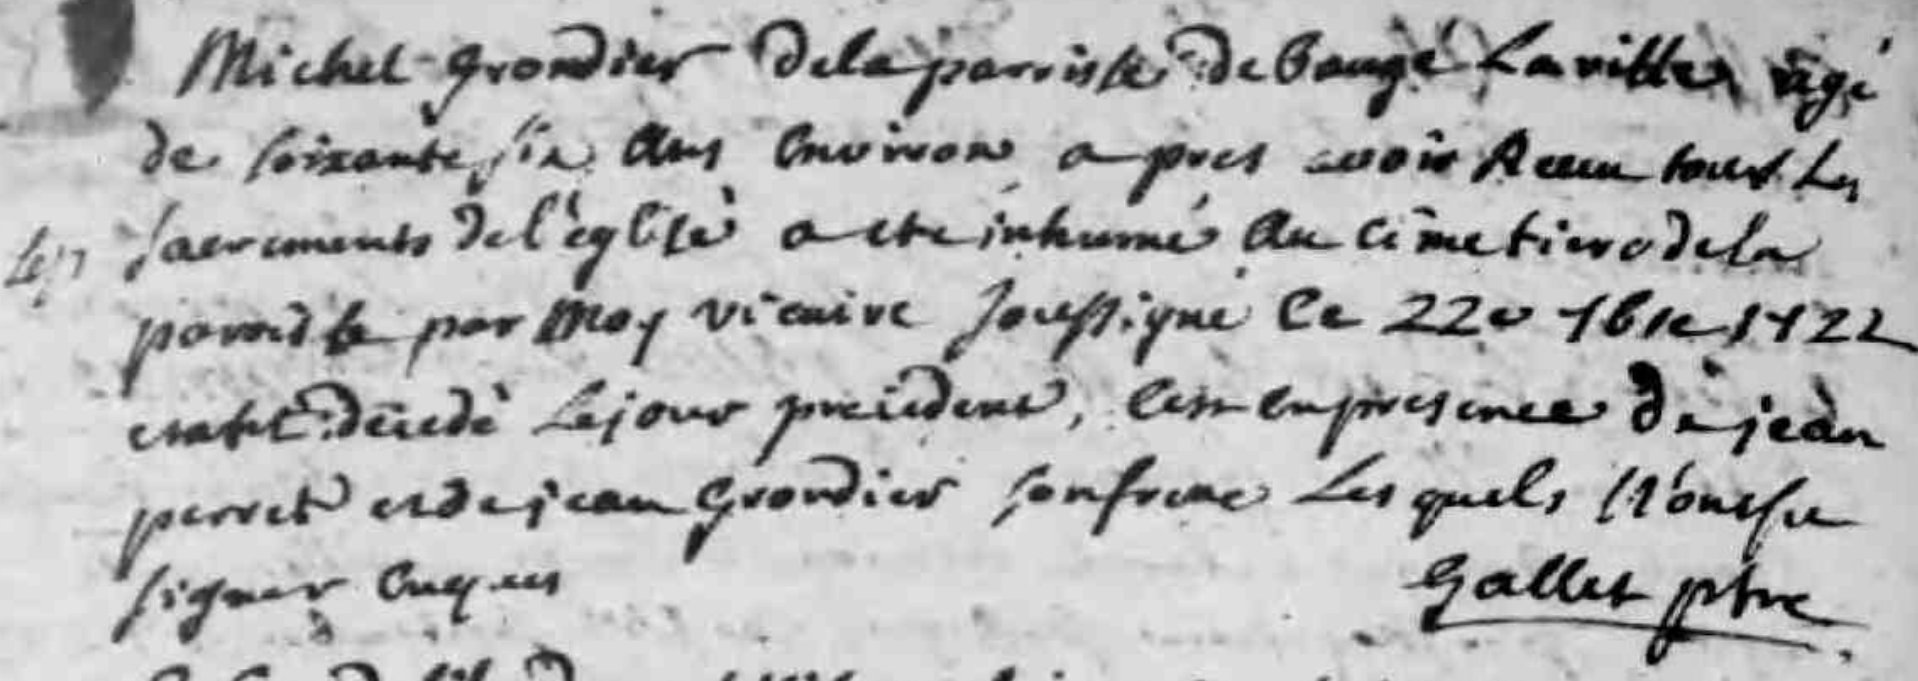 Michel Grondier dela parroisse de Baugé La ville agé
de soixante six ans Environ apres avoir Receu tous Les
sacrements de l'églisse a ete inhumé Au cimetiere dela
paroisse par Moy vicaire soussigné Le 22e 7bre 1722
estant décedé Le jour précédent, en presence de jean
perret et de jean Grondier son frere Les quels n'ont su
signer Enquis
Gallet ptre